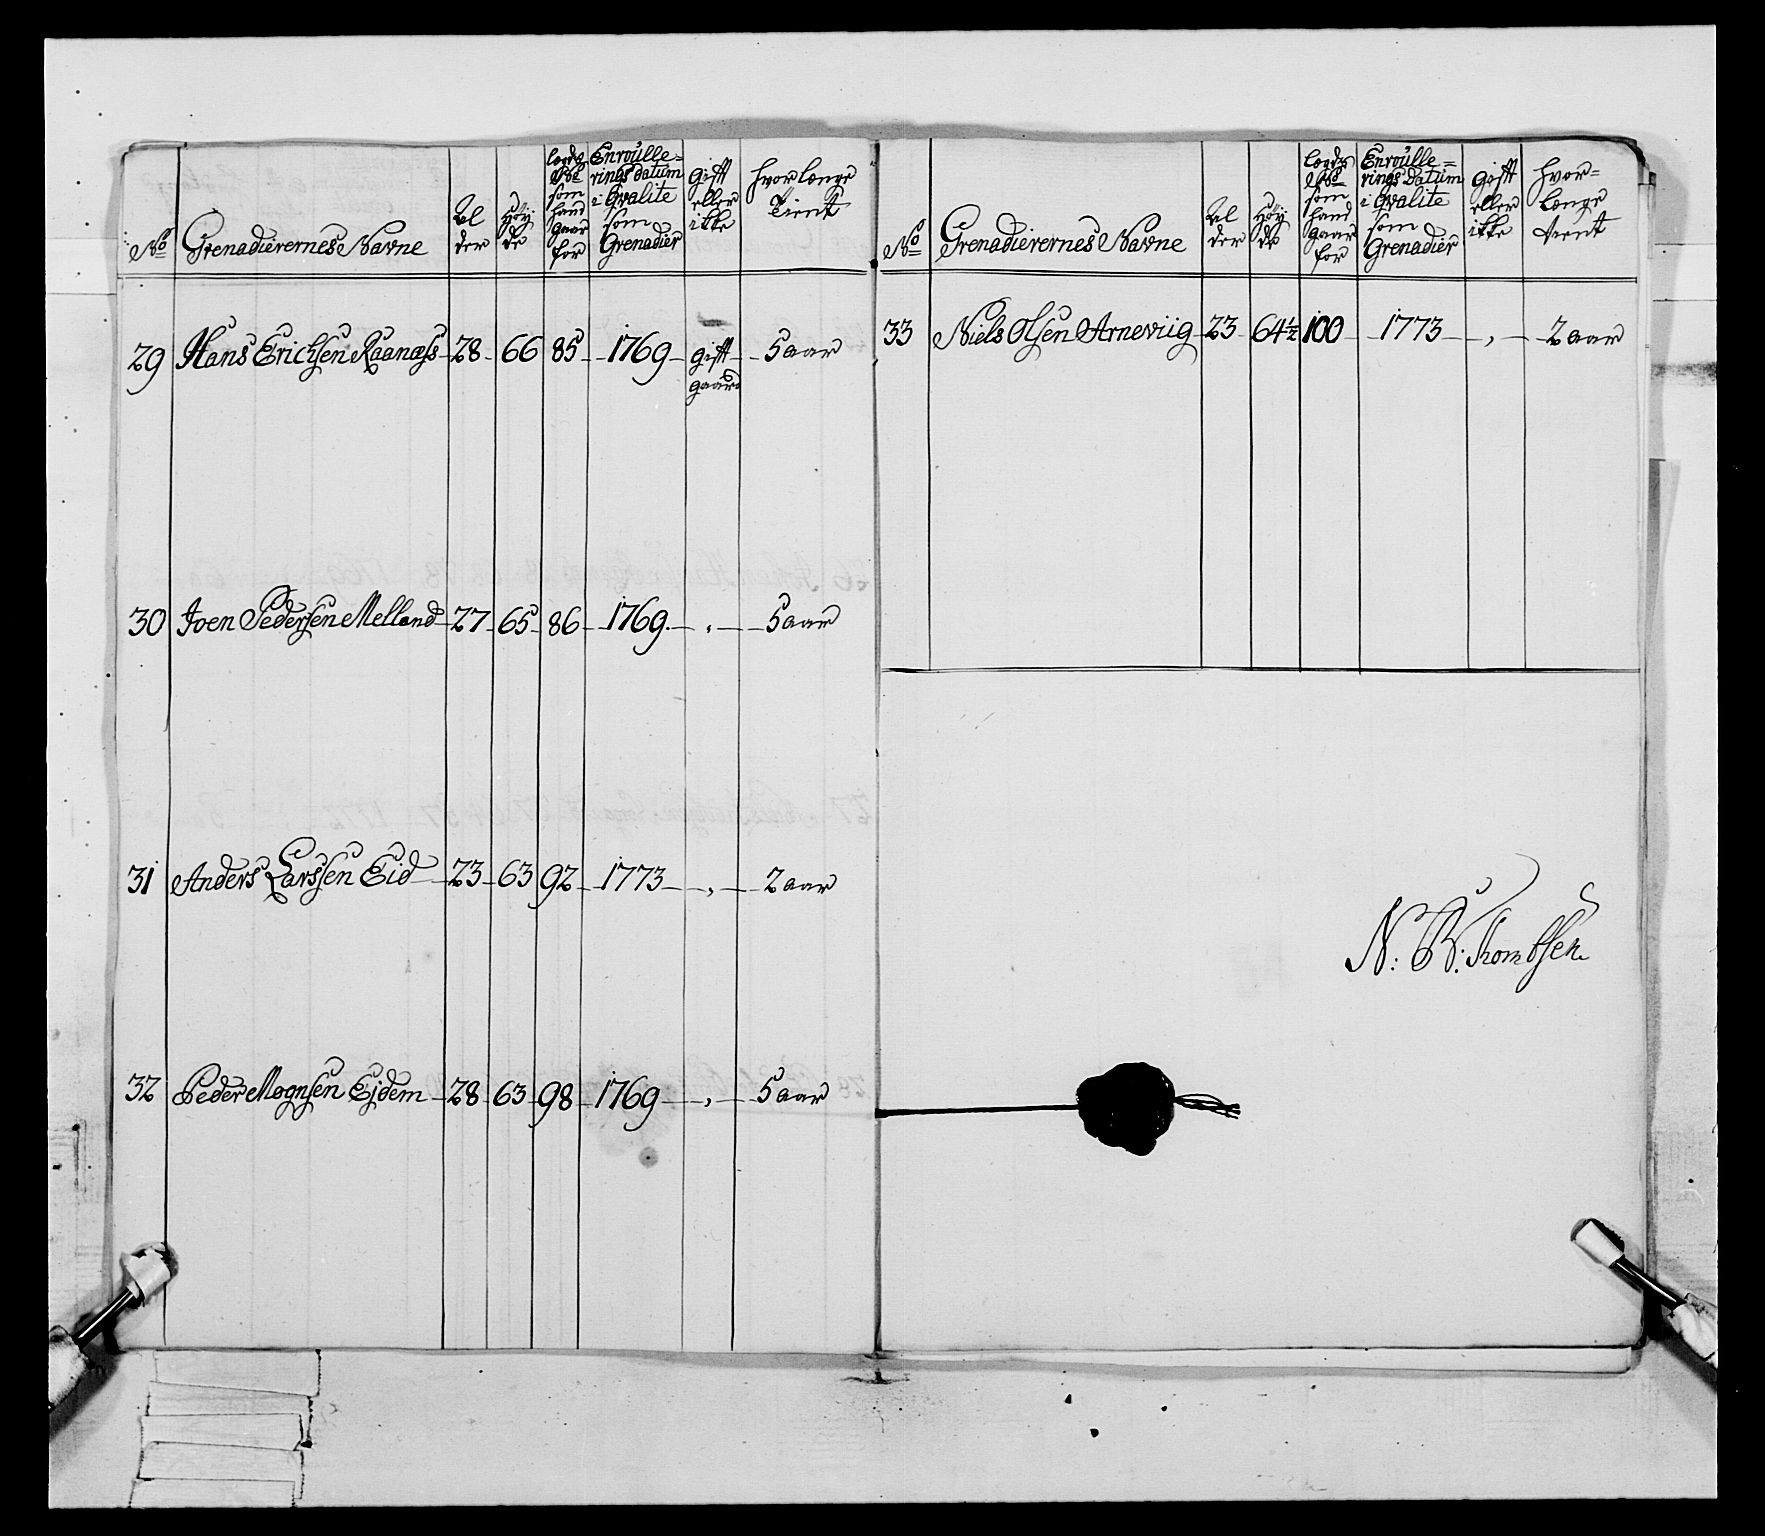 No
Grenadierernes Navne
Al
der
Höy
de
Lægds
No
som
hand
gaar
for
Enroulle=
rings datum
i Qvalite
som
Grenadier
gift
eller
ikke
hvorlænge
tient
29 Hans Erichsen Raanæss 28 66 85 1769 gift 5 aar
gaard
30 Joen Pedersen Melland 27 65 86 1769 , 5 aar
31 Anders Larssen Eid 23 63 92 1773 , 2 aar
32 Peder Mognsen Ejdem 28 63 98 1769 , 5 aar
No
Grenadierernes Navne
Al
der
Höy
de
Lægds
No
som
hand
gaar
for
Enroulle=
rings Datum
i Qvalite
som
Grenadier
gift
eller
ikke
hvor=
længe
tient
33 Niels Olsen Arneviig 23 64½ 100 1773 , 2 aar
N: B: Thombsen